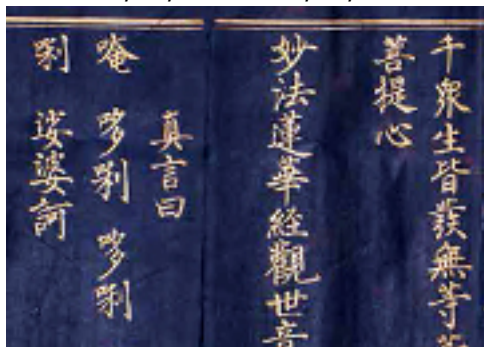 千衆生皆發無等
菩提心
妙法蓮華經觀世音
真言曰
唵 哆唎 哆唎
唎 娑婆訶